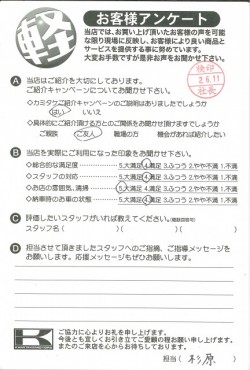 軽
お客様アンケート
当店では、お買い上げ頂いたお客様の声を可能
な限り現場に反映し、お客様により良い商品と
サービスを提供する事に努めています。
大変お手数ですが是非お声をお聞かせ下さい。
検印
26.6.11
社長
A 当店はご紹介を大切にしております。
ご紹介キャンペーンについてお聞かせ下さい。
・カミタケご紹介キャンペーンのご説明はありましたでしょうか
はい いいえ
◇具体的にご紹介頂ける方とのご関係をお聞かせ頂けますでしょうか
ご親族 ご友人 職場の方 機会があれば紹介したい
B 当店を実際にご利用になった印象をお聞かせ下さい。
◇総合的な満足度 5.大満足 4.満足 3.ふつう 2.やや不満 1.不満
◇スタッフの対応 5.大満足 4.満足 3.ふつう 2.やや不満 1.不満
◇お店の雰囲気、清掃 5.大満足 4.満足 3.ふつう 2.やや不満 1.不満
◇納車時のお車の状態 5.大満足 4.満足 3.ふつう 2.やや不満 1.不満
C 評価したいスタッフがいれば教えてください。
スタッフ名( )( )( )
D 担当させて頂きましたスタッフへのご指摘、ご指導メッセージを
お願いします。応援メッセージもぜひお願いします。
K
ご協力に心よりお礼を申し上げます。
今後とも宜しくお引き立てご愛顧の程お願い申し上げます。
またのご来店を心からお待ちしております。
担当( 杉原 )